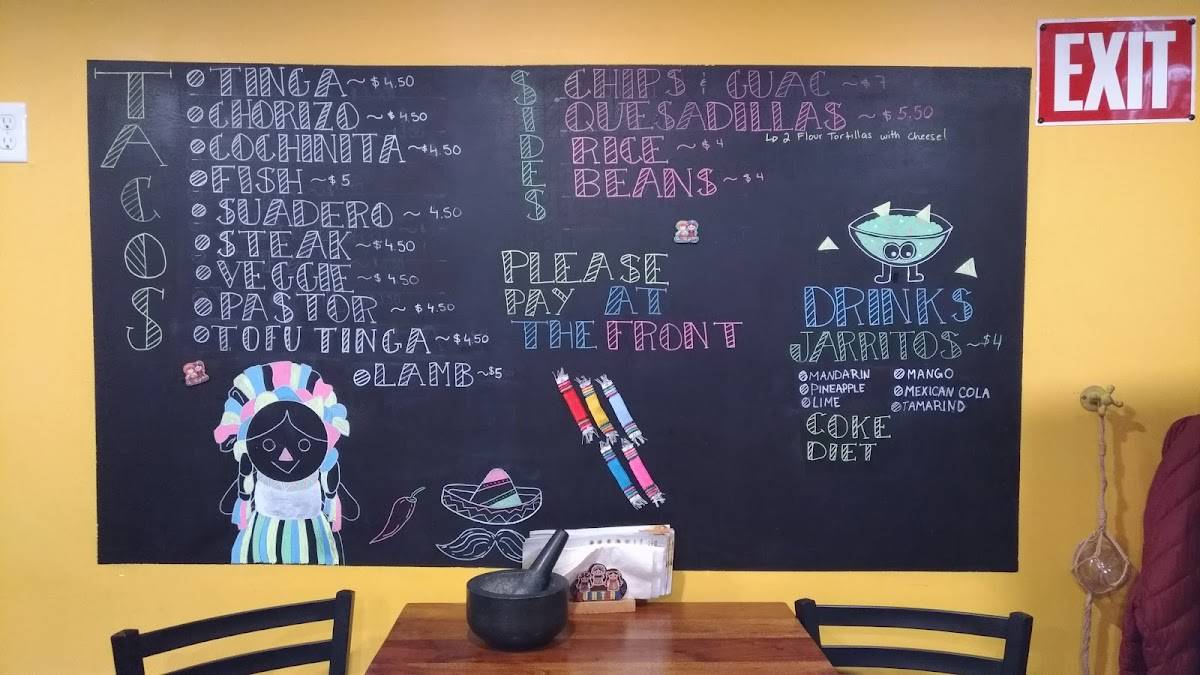 TACOS
TINGA ~ $4.50
CHORIZO ~ $4.50
COCHINITA ~ $4.50
FISH ~ $5
SUADERO ~ 4.50
STEAK ~ $4.50
VEGGIE ~ $4.50
PASTOR ~ $4.50
TOFU TINGA ~ $4.50
LAMB ~ $5
SIDES
CHIPS & GUAC ~ $7
QUESADILLAS ~ $5.50
2 Flour Tortillas with cheese!
RICE ~ $4
BEANS ~ $4
PLEASE
PAY AT
THE FRONT
DRINKS
JARRITOS ~ $4
MANDARIN
PINEAPPLE
LIME
MANGO
MEXICAN COLA
TAMARIND
COKE
DIET
EXIT